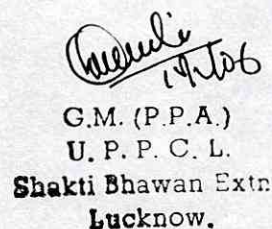 G.M. (P.P.A.)
U. P. P. C. L.
Shakti Bhawan Extn
Lucknow.